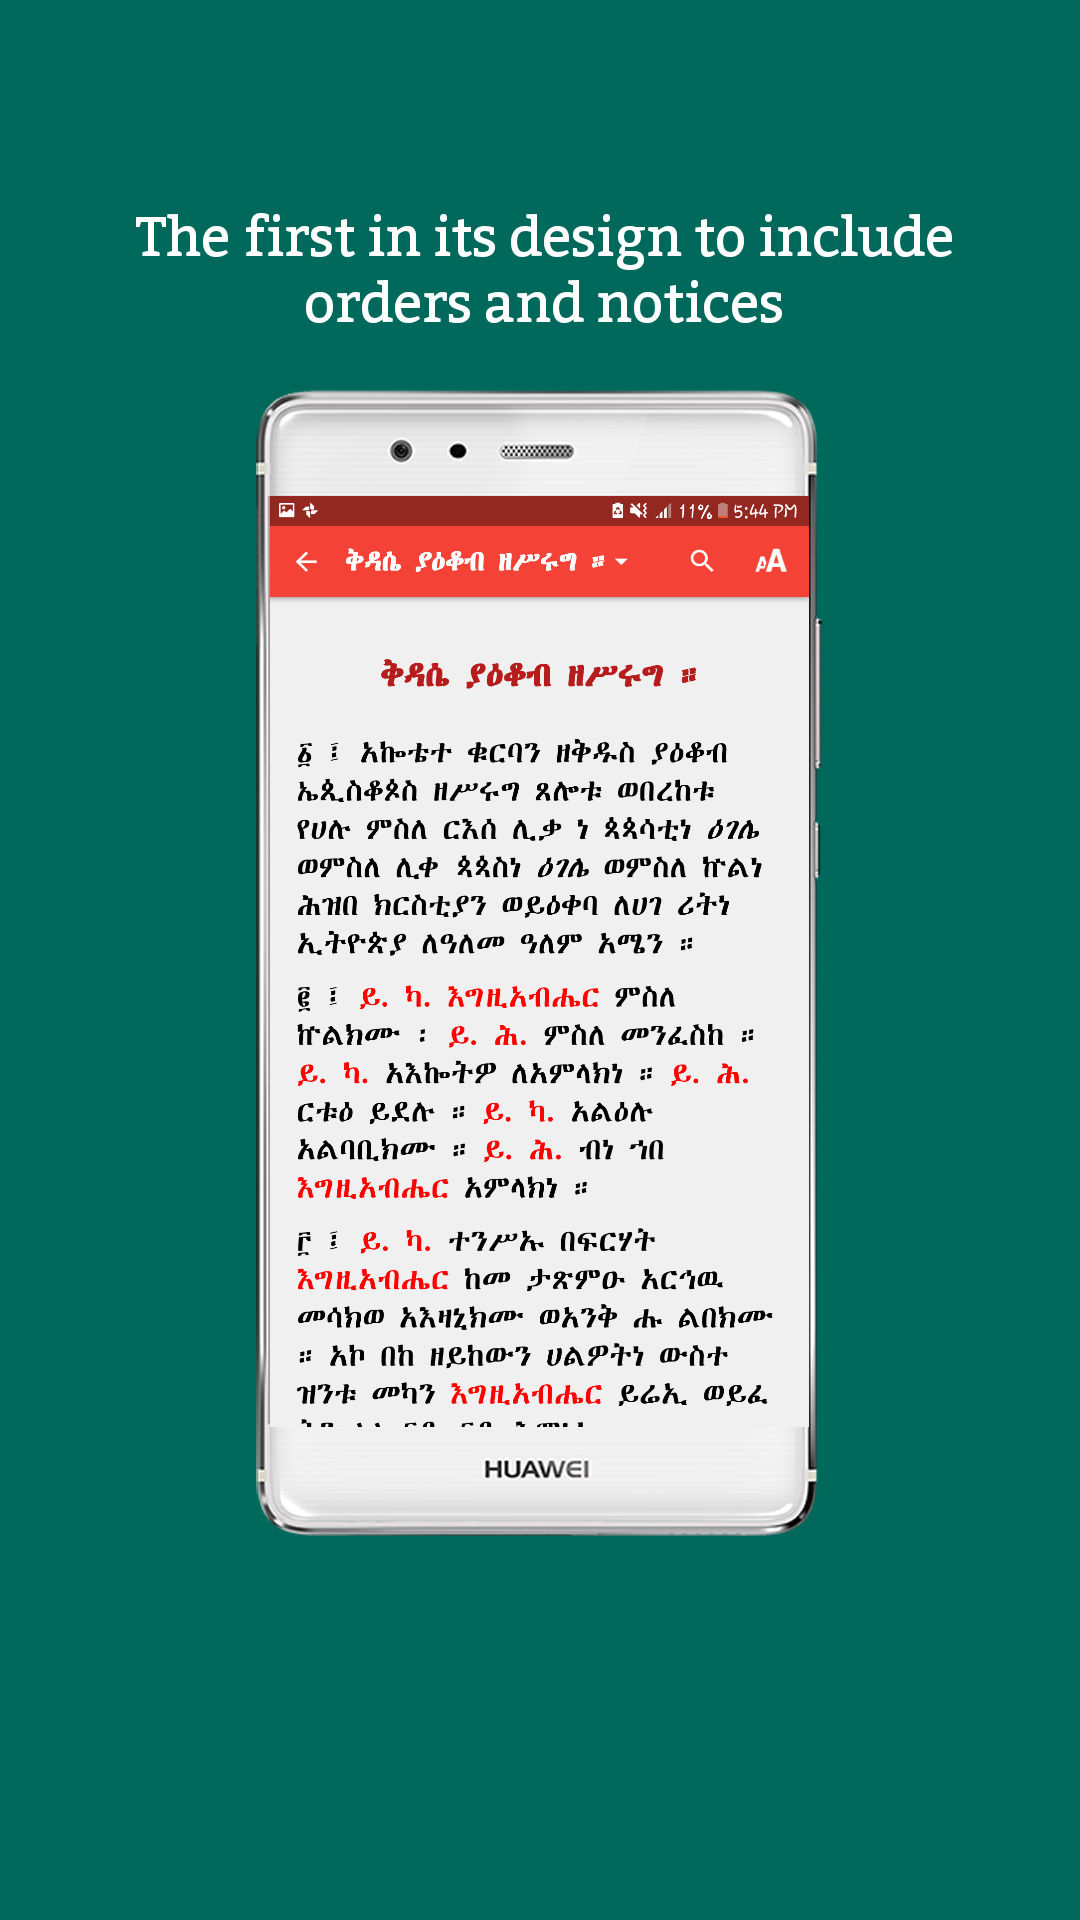 The first in its design to include
orders and notices
11% 5:44 PM
ቅዳሴ ያዕቆብ ዘሥሩግ ። AA
ቅዳሴ ያዕቆብ ዘሥሩግ ።
፩ ፤ አኰቴተ ቁርባን ዘቅዱስ ያዕቆብ
ኤጲስቆጶስ ዘሥሩግ ጸሎቱ ወበረከቱ
የሀሉ ምስለ ርእሰ ሊቃ ነ ጳጳሳቲነ ዕገሌ
ወምስለ ሊቀ ጳጳስነ ዕገሌ ወምስለ ኵልነ
ሕዝበ ክርስቲያን ወይዕቀባ ለሀገ ሪትነ
ኢትዮጵያ ለዓለመ ዓለም አሜን ።
፪ ፤ ይ. ካ. እግዚአብሔር ምስለ
ኵልክሙ ፡ ይ. ሕ. ምስለ መንፈስከ ።
ይ. ካ. አእኰትዎ ለአምላክነ ። ይ. ሕ.
ርቱዕ ይደሉ ። ይ. ካ. አልዕሉ
አልባቢክሙ ። ይ. ሕ. ብነ ኀበ
እግዚአብሔር አምላክነ ።
፫ ፤ ይ. ካ. ተንሥኡ በፍርሃት
እግዚአብሔር ከመ ታጽምዑ አርኅዉ
መሳክወ አእዛኒክሙ ወአንቅ ሑ ልበክሙ
። አኮ በከ ዘይከውን ሀልዎትነ ውስተ
ዝንቱ መካን እግዚአብሔር ይሬኢ ወይፈ
HUAWEI